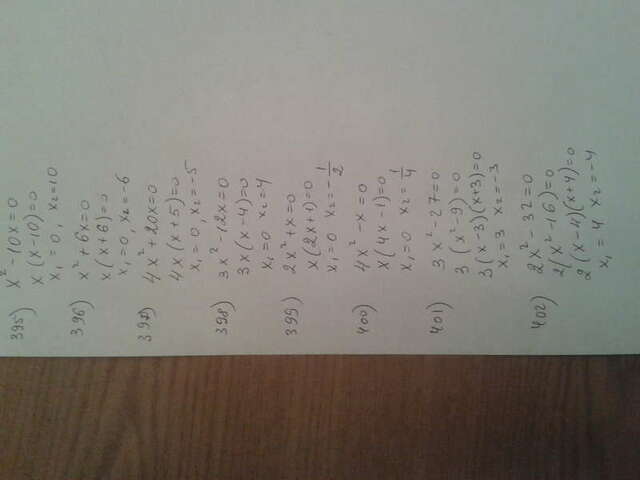 395) x² - 10x = 0
x(x-10)=0
x₁ = 0, x₂=10
396) x² + 6x = 0
x(x+6)=0
x₁ = 0, x₂=-6
397) 4x² + 20x=0
4x(x+5)=0
x₁ = 0, x₂=-5
398) 3x² - 12x=0
3x(x-4)=0
x₁=0 x₂=4
399) 2x²+x=0
x(2x+1)=0
x₁=0 x₂=-1/2
400) 4x² - x = 0
x(4x-1)=0
x₁=0 x₂=1/4
401) 3x²-27=0
3(x²-9)=0
3(x-3)(x+3)=0
x₁=3 x₂=-3
402) 2x² - 32=0
2(x²-16)=0
2(x-4)(x+4)=0
x₁=4 x₂=-4